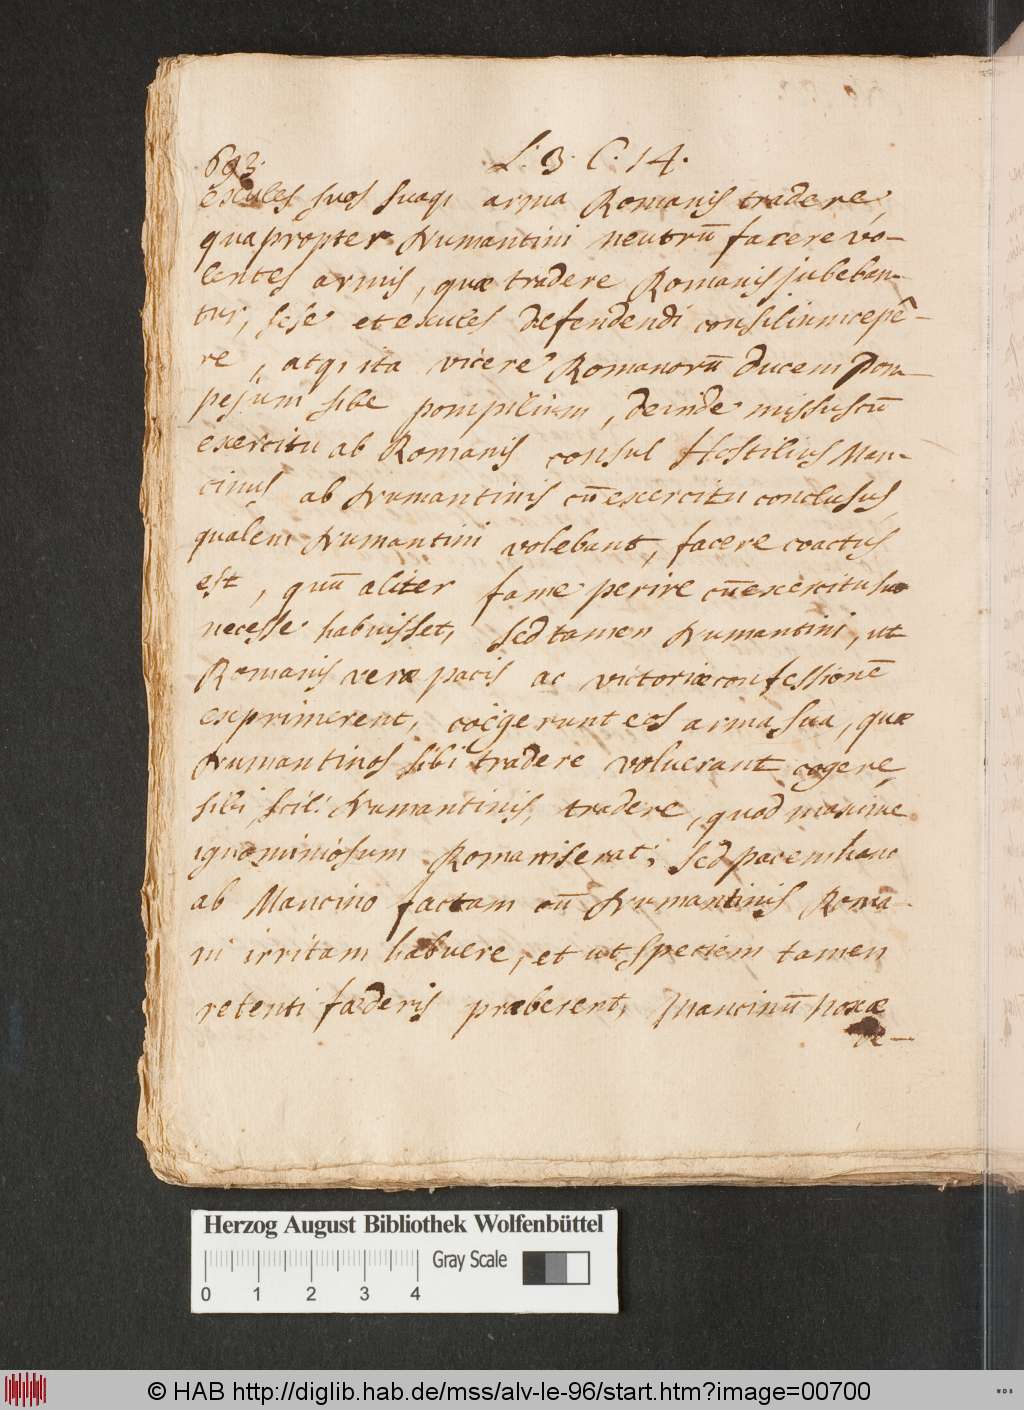 693.
L. 3. C. 14.
exules suos suaqȝ arma Romanis tradere,
quapropter Numantini neutrū facere vo-
lentes armis, quæ tradere Romanis jubeban-
tur, sese et exules defendendi consilium cepê-
re, atqȝ ita vicere Romanorū ducem Pom-
pejum sibe pompilium, deinde missus cū
exercitu ab Romanis consul Hostilius Man-
cinus ab Numantinis cū exercitu conclusus,
qualem Numantini volebant, facere coactus
est, quū aliter fame perire cū exercitu suo
necesse habuisset, sed tamen Numantini, ut
Romanis veræ pacis ac victoriæ confessionē
exprimerent, coëgerunt eos arma sua, quæ
Numantinos sibi tradere voluerant cogere,
sibi scil: Numantinis, tradere, quod maxime
ignominiosum Romanis erat; sed pacem hanc
ab Mancino factam cū Numantinis Roma-
ni irritam habuere, et ut speciem tamen
retenti fœderis præberent, Mancinū noxæ
de-
Herzog August Bibliothek Wolfenbüttel
Gray Scale
0 1 2 3 4
© HAB http://diglib.hab.de/mss/alv-le-96/start.htm?image=00700